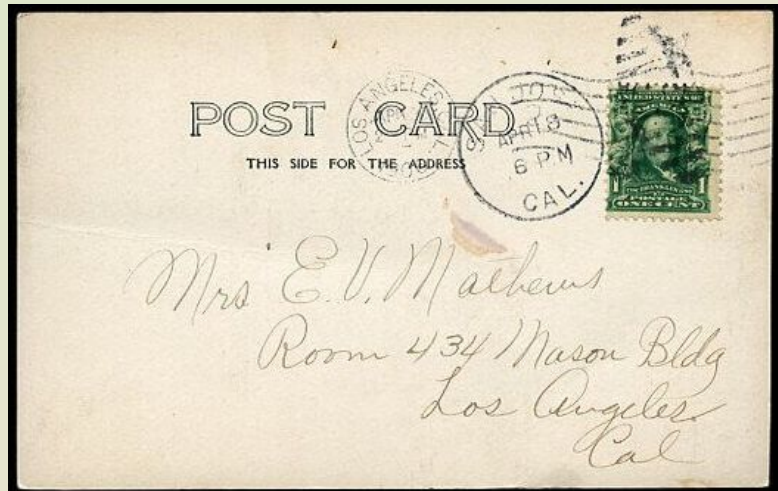 POST CARD
THIS SIDE FOR THE ADDRESS
LOS ANGELES
SAN JOSE
APR 18
6 PM
CAL.
UNITED STATES OF AMERICA
1 FRANKLIN 1
POSTAGE
ONE CENT
Mrs E. V. Mathews
Room 434 Mason Bldg
Los Angeles
Cal